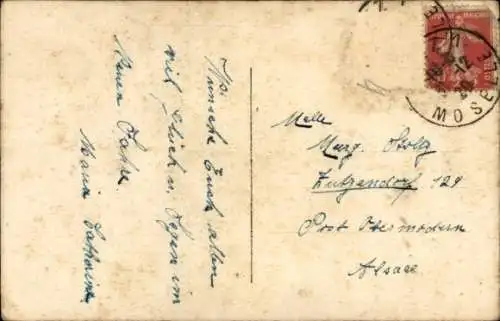 Wünsche Euch allen
viel Glück u. Segen im
Neuen Jahre.
Maria Catharina
Melle
Marg. Stoltz
Zutzendorf 129
Post Obermodern
Alsace
MOSELLE